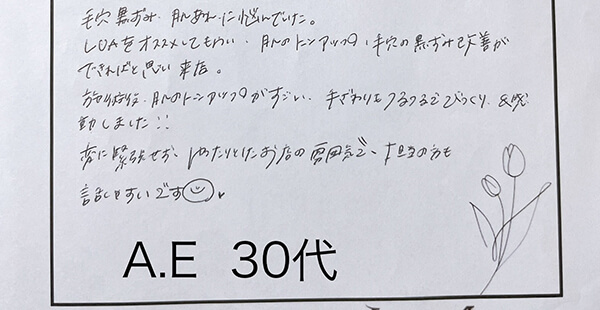 毛穴黒ずみ、肌あれに悩んでいた。
LUAをオススメしてもらい、肌のトーンアップ、毛穴の黒ずみ改善が
できればと思い来店。
施術後、肌のトーンアップがすごい、手ざわりもつるつるでびっくり&感
動しました!!
変に緊張せず、ゆったりとしたお店の雰囲気で、担当の方も
話しやすいです
A.E 30代